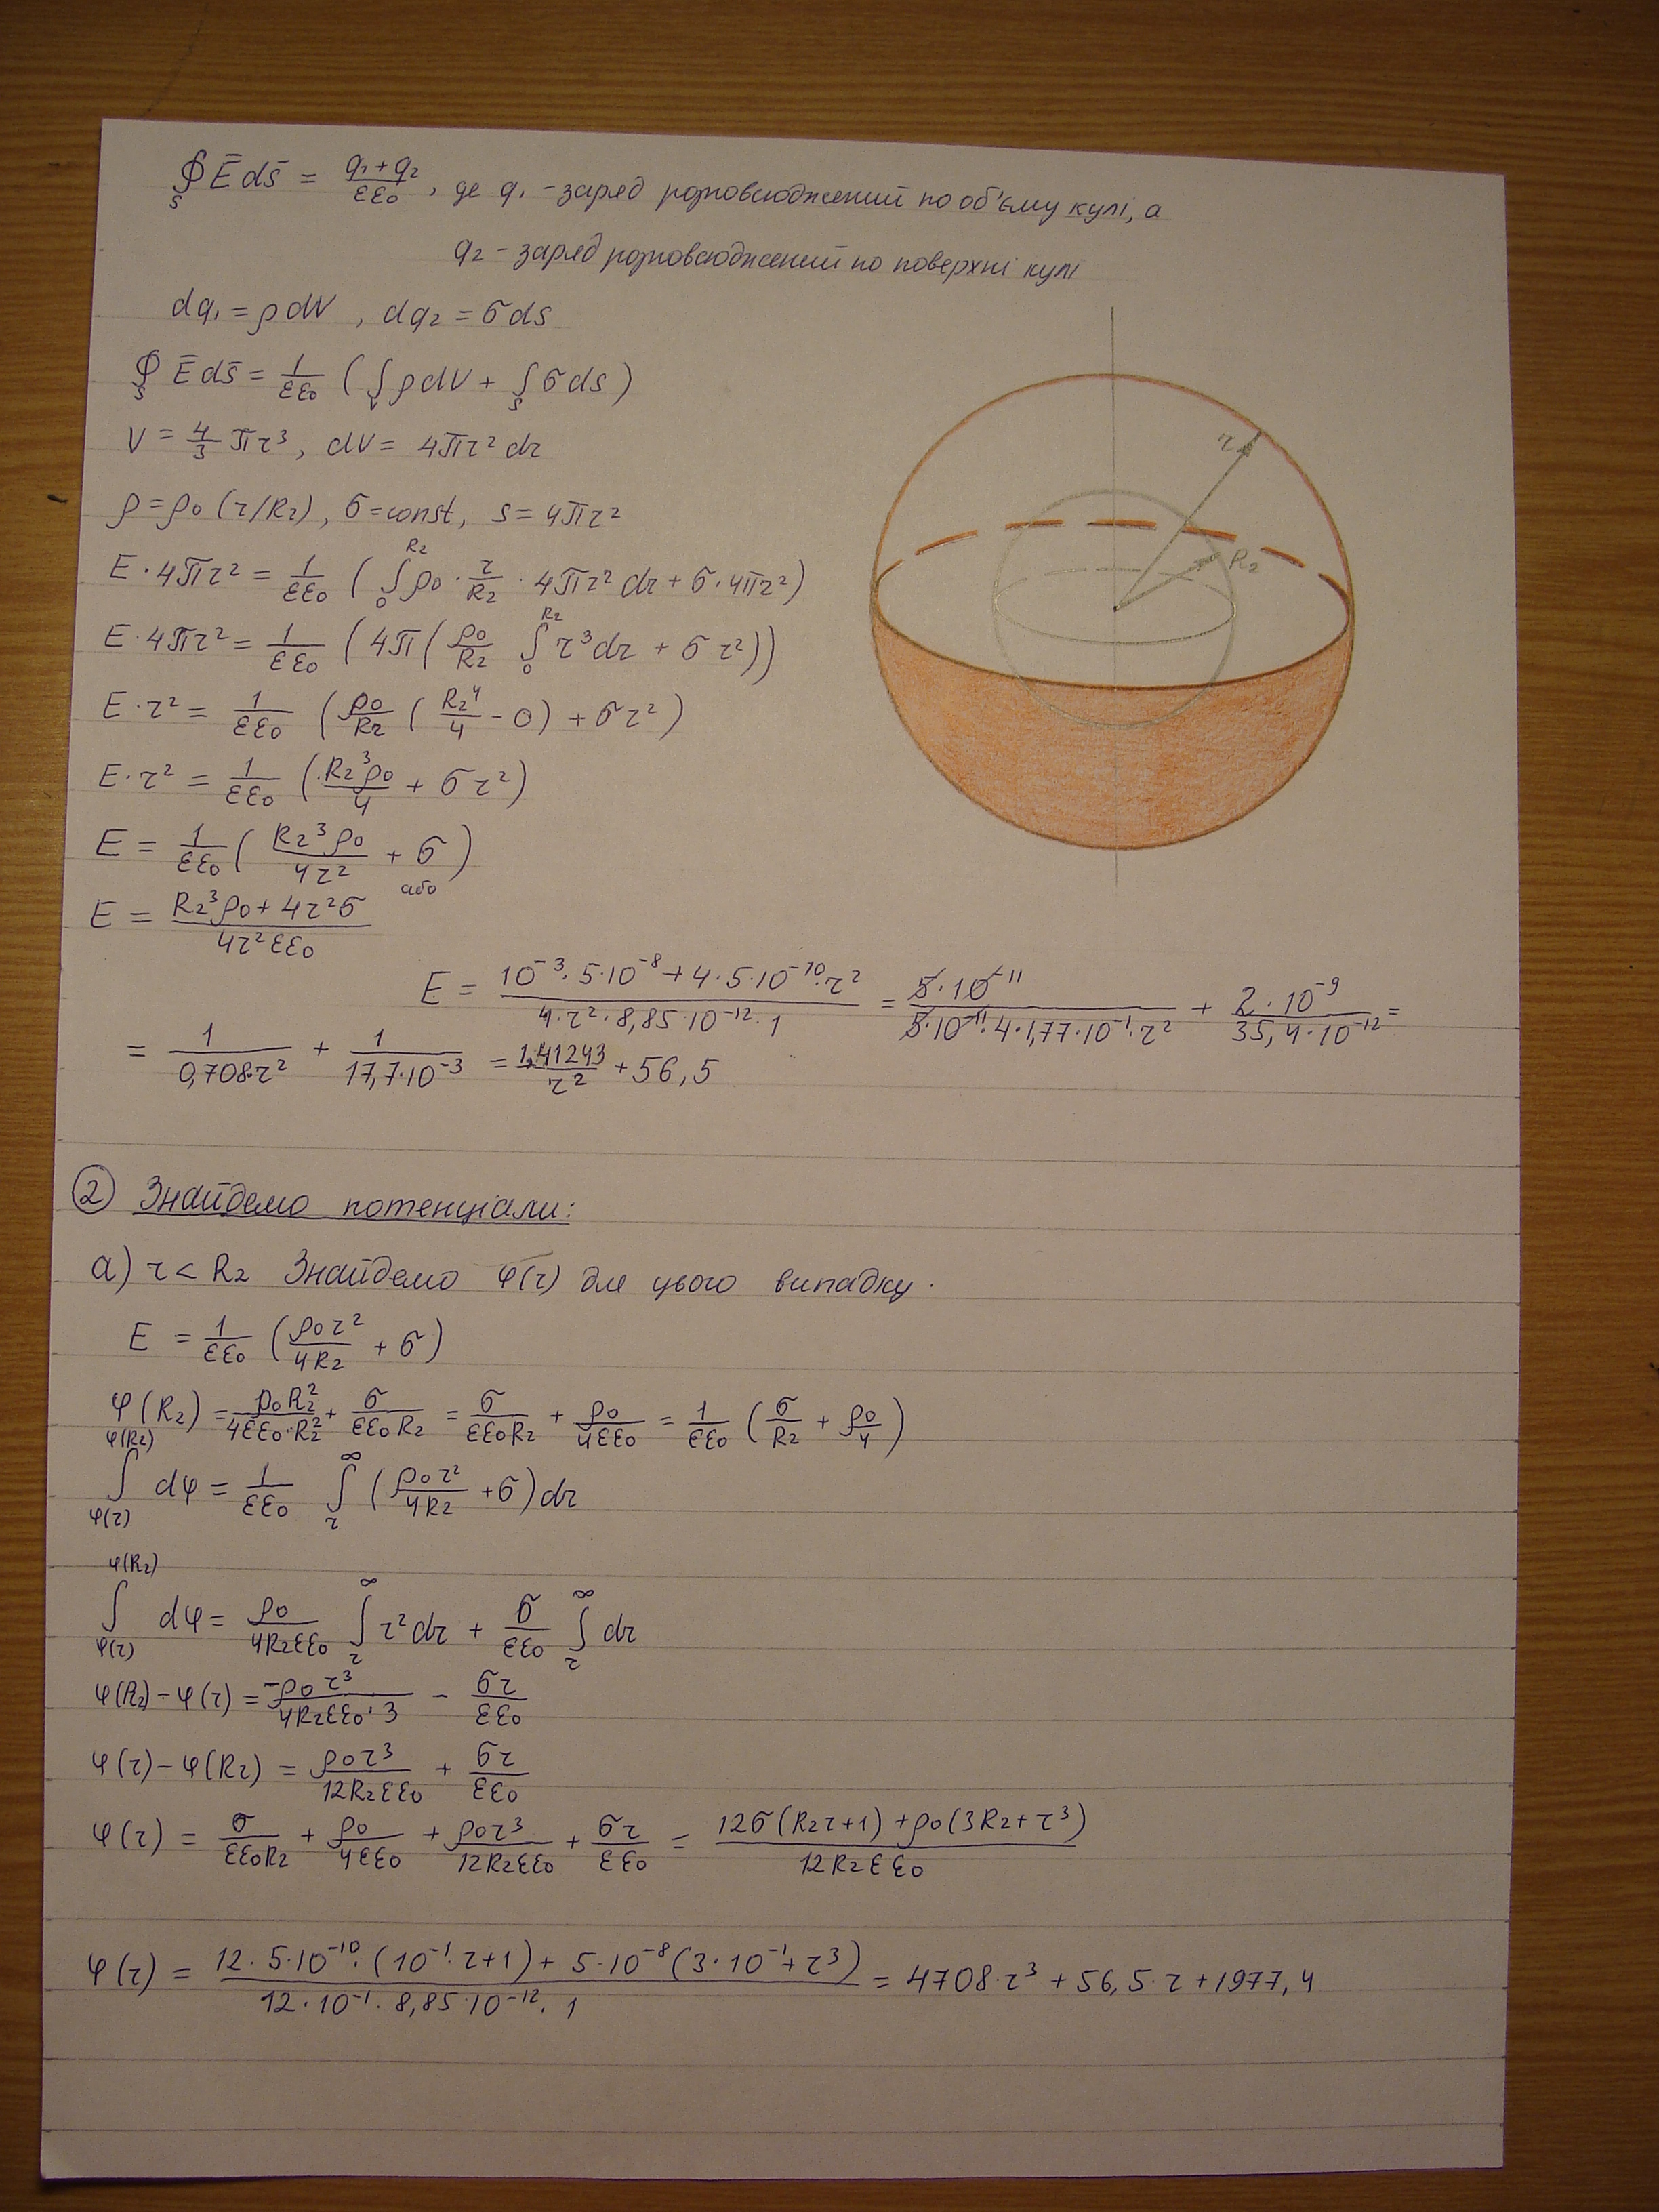 ∮_S Ē ds̄ = (q₁ + q₂)/(εε₀), де q₁ - заряд розповсюджений по об'єму кулі, а
q₂ - заряд розповсюджений по поверхні кулі
dq₁ = ρdV, dq₂ = σds
∮_S Ē ds̄ = 1/(εε₀) (∫_V ρdV + ∫_S σds)
V = 4/3 πr³, dV = 4πr² dr
ρ = ρ₀(r/R₂), σ = const, s = 4πr²
E · 4πr² = 1/(εε₀) (∫₀^R₂ ρ₀ · r/R₂ · 4πr² dr + σ · 4πr²)
E · 4πr² = 1/(εε₀) (4π(ρ₀/R₂ ∫₀^R₂ r³dr + σr²))
E · r² = 1/(εε₀) (ρ₀/R₂ (R₂⁴/4 - 0) + σr²)
E · r² = 1/(εε₀) (R₂³ρ₀/4 + σr²)
E = 1/(εε₀) (R₂³ρ₀/(4r²) + σ)
або
E = (R₂³ρ₀ + 4r²σ)/(4r²εε₀)
E = (10⁻³ · 5·10⁻⁸ + 4 · 5·10⁻¹⁰ · r²)/(4 · r² · 8,85·10⁻¹² · 1) = (5·10⁻¹¹)/(5·10⁻¹¹ · 4 · 1,77·10⁻¹ · r²) + (2·10⁻⁹)/(35,4·10⁻¹²) =
= 1/(0,708·r²) + 1/(17,7·10⁻³) = 1,41243/r² + 56,5
r
R₂
② Знайдемо потенціали:
а) r < R₂ Знайдемо φ(r) для цього випадку.
E = 1/(εε₀) (ρ₀r²/(4R₂) + σ)
φ(R₂) = ρ₀R₂²/(4εε₀·R₂²) + σ/(εε₀R₂) = σ/(εε₀R₂) + ρ₀/(4εε₀) = 1/(εε₀) (σ/R₂ + ρ₀/4)
∫_φ(r)^φ(R₂) dφ = 1/(εε₀) ∫_r^∞ (ρ₀r²/(4R₂) + σ) dr
∫_φ(r)^φ(R₂) dφ = ρ₀/(4R₂εε₀) ∫_r^∞ r²dr + σ/(εε₀) ∫_r^∞ dr
φ(R₂) - φ(r) = -ρ₀r³/(4R₂εε₀·3) - σr/(εε₀)
φ(r) - φ(R₂) = ρ₀r³/(12R₂εε₀) + σr/(εε₀)
φ(r) = σ/(εε₀R₂) + ρ₀/(4εε₀) + ρ₀r³/(12R₂εε₀) + σr/(εε₀) = (12σ(R₂r+1) + ρ₀(3R₂+r³))/(12R₂εε₀)
φ(r) = (12 · 5·10⁻¹⁰ · (10⁻¹·r+1) + 5·10⁻⁸(3·10⁻¹+r³))/(12·10⁻¹ · 8,85·10⁻¹² · 1) = 4708·r³ + 56,5·r + 1977,4